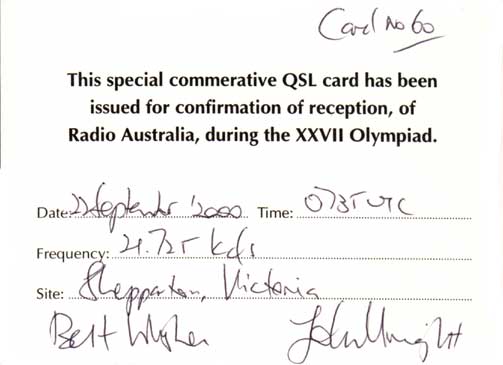 Card no 60
This special commerative QSL card has been
issued for confirmation of reception, of
Radio Australia, during the XXVII Olympiad.
Date: September '2000 Time: 0735 UTC
Frequency: 21.725 
Site: Shepparton, Victoria
Best Wishes John Wright